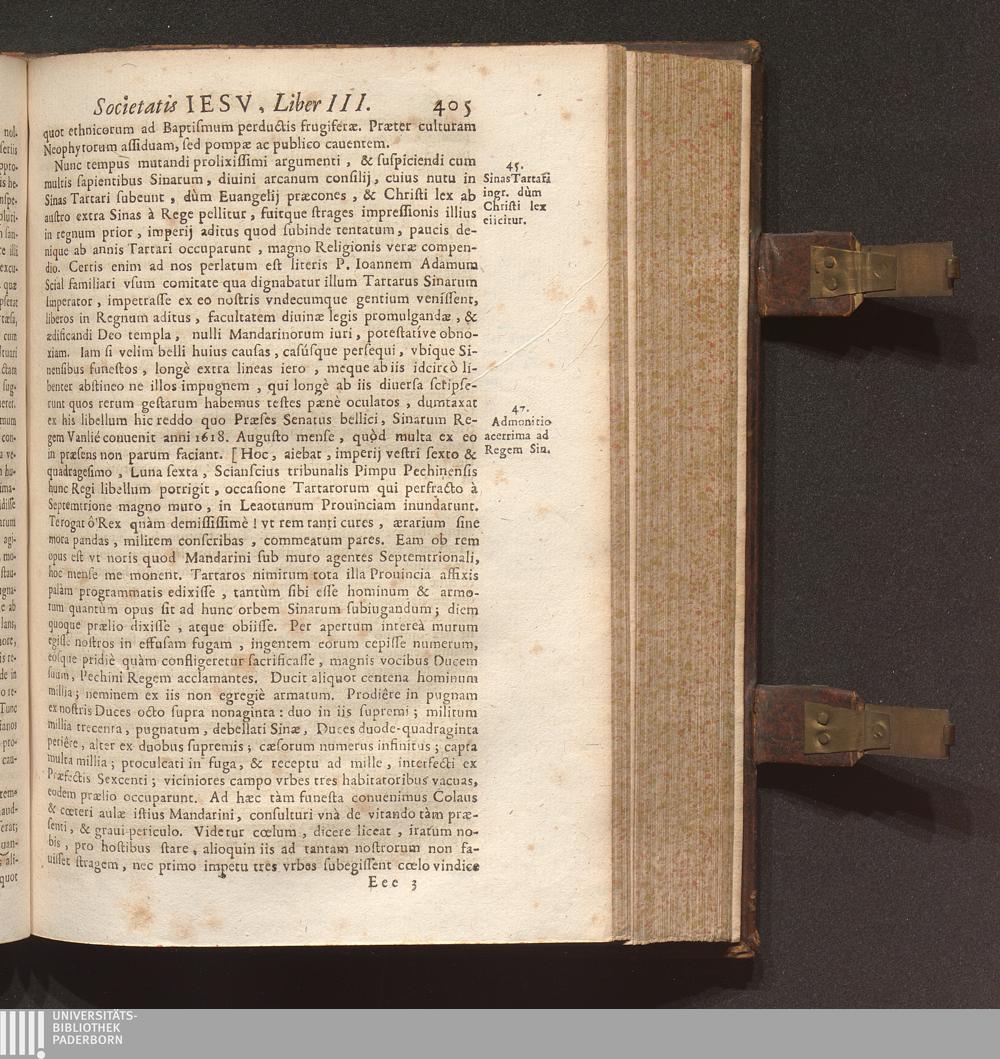 Societatis IESV, Liber III. 405
quot ethnicorum ad Baptiſmum perductis frugiferæ. Præter culturam
Neophytorum aſſiduam, ſed pompæ ac publico cauentem.
Nunc tempus mutandi prolixiſſimi argumenti, & ſuſpiciendi cum
multis ſapientibus Sinarum, diuini arcanum conſilij, cuius nutu in
Sinas Tartari ſubeunt, dùm Euangelij præcones, & Chriſti lex ab
auſtro extra Sinas à Rege pellitur, fuitque ſtrages impreſſionis illius
in regnum prior, imperij aditus quod ſubinde tentatum, paucis de-
nique ab annis Tartari occuparunt, magno Religionis veræ compen-
dio. Certis enim ad nos perlatum eſt literis P. Ioannem Adamum
Scial familiari vſum comitate qua dignabatur illum Tartarus Sinarum
Imperator, impetraſſe ex eo noſtris vndecumque gentium veniſſent,
liberos in Regnum aditus, facultatem diuinæ legis promulgandæ, &
ædificandi Deo templa, nulli Mandarinorum iuri, poteſtatiue obno-
xiam. Iam ſi velim belli huius cauſas, caſúſque perſequi, vbique Si-
nenſibus funeſtos, longè extra lineas iero, meque ab iis idcircò li-
benter abſtineo ne illos impugnem, qui longè ab iis diuerſa ſcripſe-
runt quos rerum geſtarum habemus teſtes pænè oculatos, dumtaxat
ex his libellum hic reddo quo Præſes Senatus bellici, Sinarum Re-
gem Vanlié conuenit anni 1618. Auguſto menſe, quòd multa ex eo
in præſens non parum faciant. [Hoc, aiebat, imperij veſtri ſexto &
quadrageſimo, Luna ſexta, Scianſcius tribunalis Pimpu Pechinenſis
hunc Regi libellum porrigit, occaſione Tartarorum qui perfracto à
Septemtrione magno muro, in Leaotunum Prouinciam inundarunt.
Te rogat ô Rex quàm demiſſiſſimè! vt rem tanti cures, ærarium ſine
mora pandas, militem conſcribas, commeatum pares. Eam ob rem
opus eſt vt noris quod Mandarini ſub muro agentes Septemtrionali,
hoc menſe me monent. Tartaros nimirum tota illa Prouincia affixis
palàm programmatis edixiſſe, tantùm ſibi eſſe hominum & armo-
rum quantum opus ſit ad hunc orbem Sinarum ſubiugandum; diem
quoque prælio dixiſſe, atque obiiſſe. Per apertum intereà murum
egiſſe noſtros in effuſam fugam, ingentem eorum cepiſſe numerum,
eoſque pridiè quàm confligeretur ſacrificaſſe, magnis vocibus Ducem
ſuum, Pechini Regem acclamantes. Ducit aliquot centena hominum
millia; neminem ex iis non egregiè armatum. Prodiêre in pugnam
ex noſtris Duces octo ſupra nonaginta: duo in iis ſupremi; militum
millia trecenta, pugnatum, debellati Sinæ, Duces duode-quadraginta
periêre, alter ex duobus ſupremis; cæſorum numerus infinitus; capta
multa millia; proculcati in fuga, & receptu ad mille, interfecti ex
Præfectis Sexcenti; viciniores campo vrbes tres habitatoribus vacuas,
eodem prælio occuparunt. Ad hæc tàm funeſta conuenimus Colaus
& cœteri aulæ iſtius Mandarini, conſulturi vnà de vitando tàm præ-
ſenti, & graui periculo. Videtur cœlum, dicere liceat, iratum no-
bis, pro hoſtibus ſtare, alioquin iis ad tantam noſtrorum non fa-
uiſſet ſtragem, nec primo impetu tres vrbes ſubegiſſent cœlo vindice
Eee 3
45.
Sinas Tartari
ingr. dùm
Chriſti lex
eiicitur.
47.
Admonitio
acerrima ad
Regem Sin.
UNIVERSITÄTS-
BIBLIOTHEK
PADERBORN